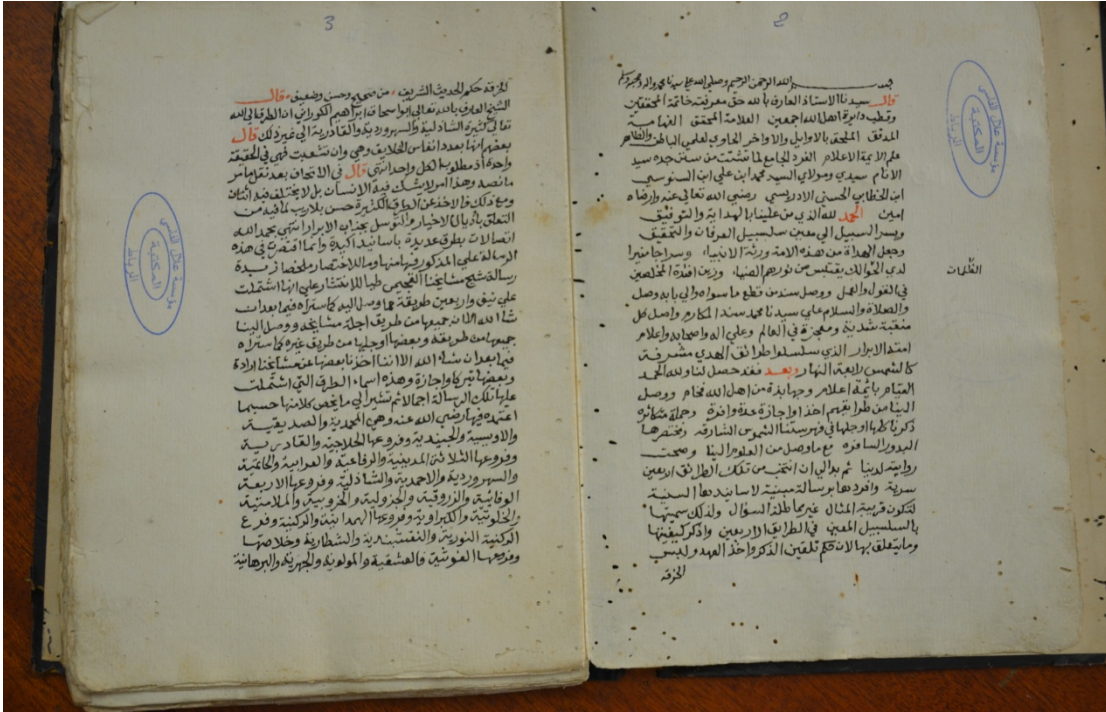 2
بسم الله الرحمن الرحيم وصلى الله على سيدنا محمد واله وصحبه وسلم
قال سيدنا الاستاذ العارف بالله حق معرفته خاتمة المحققين
وقطب دائرة اهل الله اجمعين العلامة المحقق الفهامة
المدقق الملحق بالاوايل والاواخر الحاوي لعلمي الباطن والظاهر
علم الايمة الاعلام الفرد الجامع لما تشتت من سنن جده سيد
الانام سيدي ومولاي السيد محمد ابن علي ابن السنوسي
ابن الخطابي الحسني الادريسي رضي الله تعالى عنه وارضاه
امين الحمد لله الذي من علينا بالهداية والتوفيق
ويسر السبيل الى معين سلسبيل العرفان والتحقيق
وجعل الهداة من هذه الامة ورثة الانبيا، وسراجا منيرا
لدي الحوالك يقتبس من نورهم الضياء وزين افئدة المخلصين
الظلمات
في القول والعمل ووصل سند من قطع ما سواه والى بابه وصل
والصلاة والسلام على سيدنا محمد سند المكارم واصل كل
منقبة شدية ومعجزة في العالم وعلى اله واصحابه واعلام
امته الابرار الذي سلسلوا طرائق الهدي مشرفة
كالشمس رابعة النهار وبعد فقد حصل لنا ولله الحمد
القيام بائمة اعلام وجهابذة من اهل الله فخام ووصل
الينا من طرائقهم اخذا واجازة عدة وافرة وجملة متكاثره
ذكرنا كلها او جلها في فهرستنا الشموس الشارقه ومختصرها
البدور السافره مع ما وصل من العلوم الينا وصحت
روايته لدينا ثم بدا لي ان انتخب من تلك الطرائق اربعين
سرية وافردها برسالة مبينة لاسانيدها السنية
لتكون قريبة المثال غير مماطلة السؤال ولذلك سميتها
بالسلسبيل المعين في الطرائق الاربعين واذكر كيفيتها
وما يتعلق بها لان حكم تلقين الذكر واخذ العهد ولبس
الخرقه
مؤسسة علال الفاسي
المكتبة
الرباط
3
الخرقة حكم الحديث الشريف، من صحيح وحسن وضعيف، قال
الشيخ العارف بالله تعالى ابو اسحاق ابراهيم الكوراني ان الطرق الى الله
تعالى كثيرة الشاذلية والسهروردية والقادرية الى غير ذلك قال
بعضهم انها بعدد انفاس الخلايق وهي وان تشعبت فهي في الحقيقة
واحدة اذ مطلوب الكل واحد انتهى قال في الاتحاف بعد نقل ما مر
ما نصه وهذا امر لا يشك فيه الانسان بل لا يختلف فيه اثنان
ومع ذلك فالاخذ عن الطرق الكثيرة حسن بلا ريب لما فيه من
التعلق باذيال الاخيار والتوسل بجناب الابرار انتهى بحمد الله
اتصالات بطرق عديدة باسانيد اكيدة وانما اقتصرت في هذه
الرسالة على المذكور فيها منها وما للاختصار وملخصا زبدة
رسالة شيخ مشايخنا العجيمي طلبا للاقتصار على انها اشتملت
على نيف واربعين طريقة مما وصل اليه كما ستراه فيما بعد ان
شا الله الا ان جميعها من طريق اجلة مشايخه ووصل الينا
جميعها من طريقه وبعضها او جلها من طريق غيره كما ستراه
فيما بعد ان شاء الله الا اننا اخذنا بعضها عن مشايخنا ارادة
وبعضها تبركا واجازة وهذه اسماء الطرق التي اشتملت
عليها تلك الرسالة اجمالا ثم نشير الى ما يخص كلا منها حسبما
اعتمده فيها رضي الله عنه وهي المحمدية والصديقية
والاويسية والجنيدية وفروعها الحلاجية والقادرية
وفروعها الثلاثة المدينية والرفاعية والعرابية والحاتمية
والسهروردية والاحمدية والشاذلية وفروعها الاربعة
الوفائية والزروقية والجزولية والخروبية والملامتية
والخلوتية والكبراوية وفروعها الهمدانية والركنية وفرع
الركنية النورية والنقشبندية والشطارية وخلاصتها
وفروعها الغوثية والعشقية والمولوية والجهرية والبرهانية
مؤسسة علال الفاسي
المكتبة
الرباط